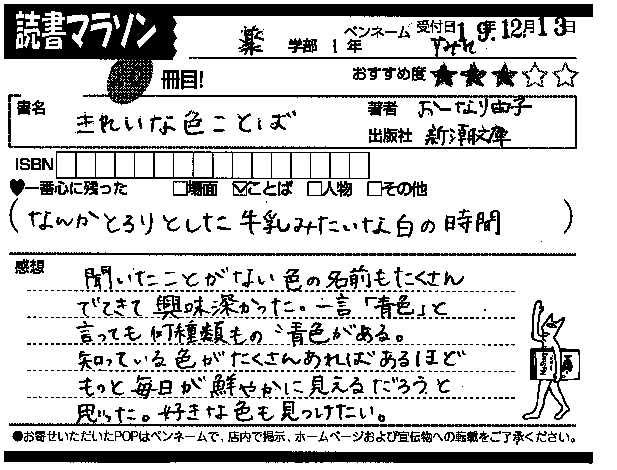 読書マラソン
薬 学部 1年
ペンネーム すみれ
受付日 19年12月13日
冊目!
おすすめ度 ★★★☆☆
書名 きれいな色ことば
著者 おーなり由子
出版社 新潮文庫
ISBN
♥一番心に残った □場面 ☑ことば □人物 □その他
(なんかとろりとした牛乳みたいな白の時間)
感想
聞いたことがない色の名前もたくさん
でてきて興味深かった。一言「青色」と
言っても何種類もの青色がある。
知っている色がたくさんあればあるほど
もっと毎日が鮮やかに見えるだろうと
思った。好きな色も見つけたい。
●お寄せいただいたPOPはペンネームで、店内で掲示、ホームページおよび宣伝物への転載をご了承ください。